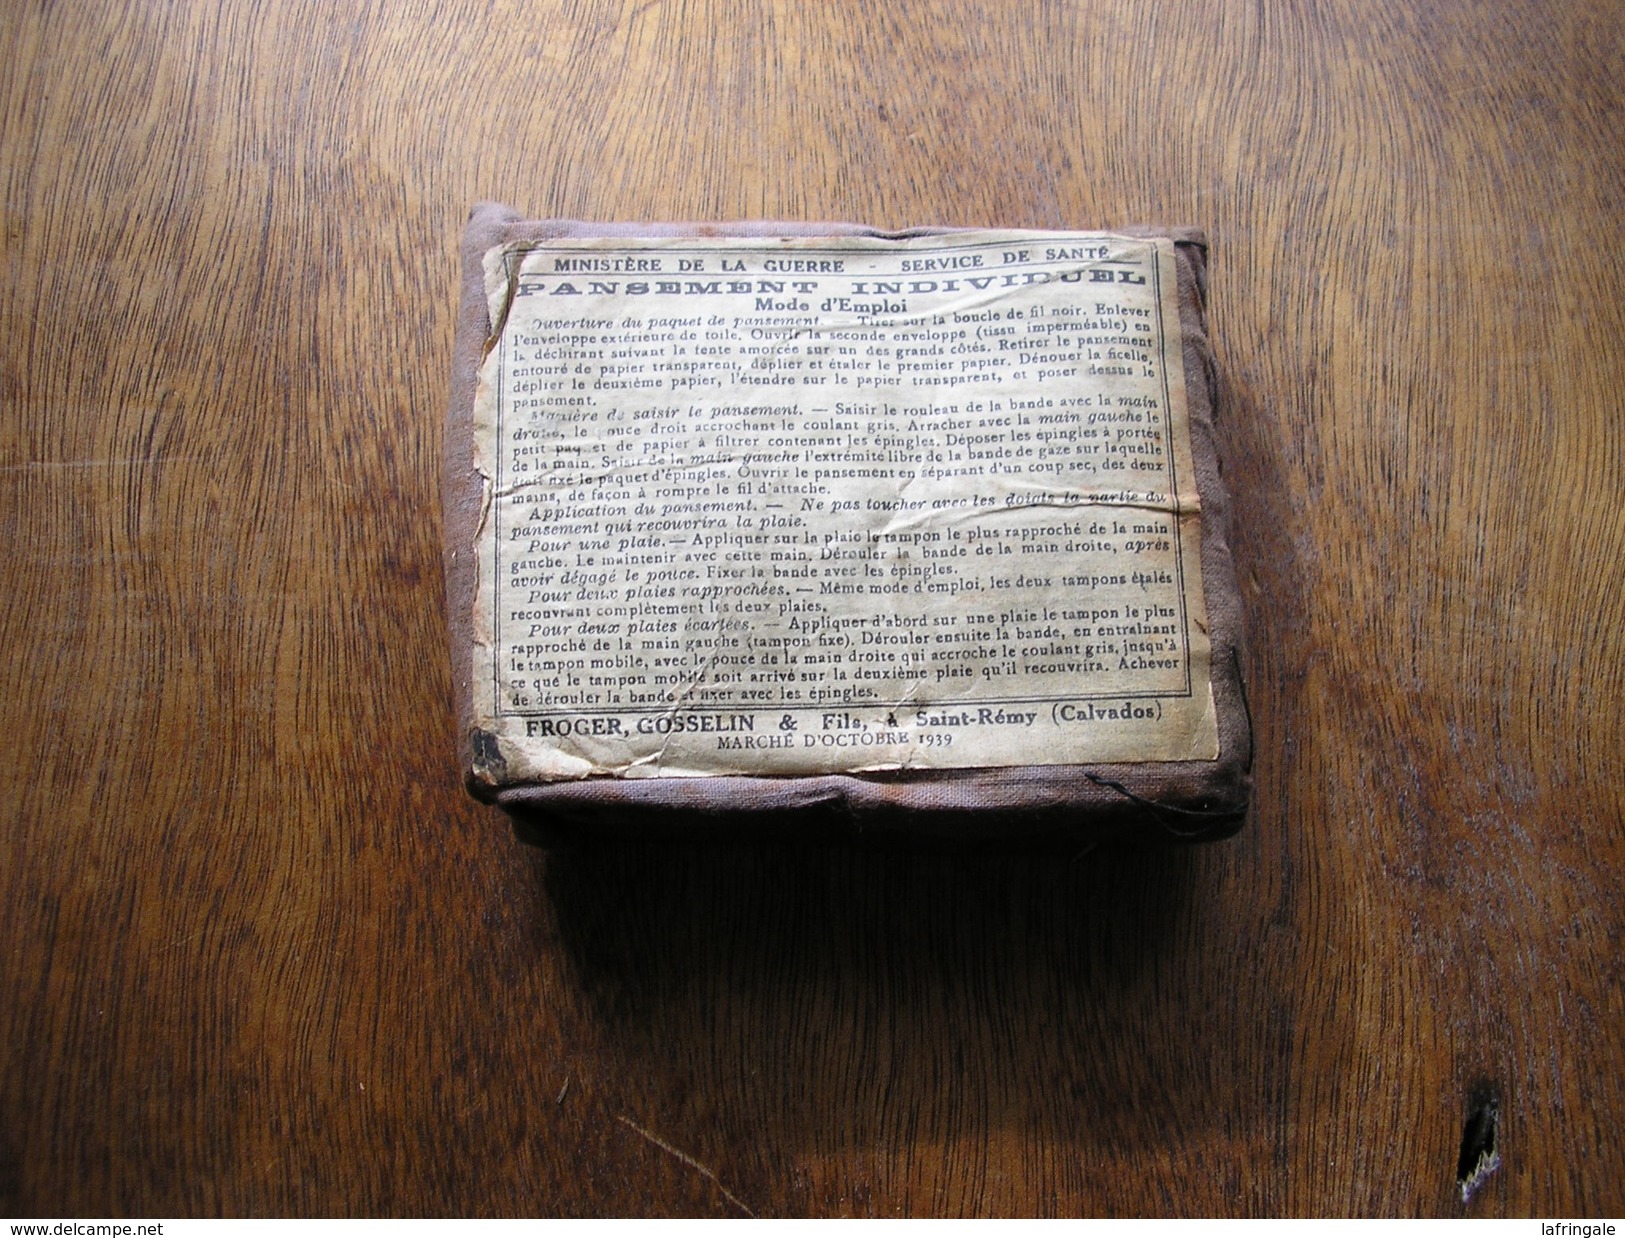 MINISTÈRE DE LA GUERRE - SERVICE DE SANTÉ
PANSEMENT INDIVIDUEL
Mode d'Emploi
Ouverture du paquet de pansement. — Tirer sur la boucle de fil noir. Enlever
l'enveloppe extérieure de toile. Ouvrir la seconde enveloppe (tissu imperméable) en
la déchirant suivant la fente amorcée sur un des grands côtés. Retirer le pansement
entouré de papier transparent, déplier et étaler le premier papier. Dénouer la ficelle,
déplier le deuxième papier, l'étendre sur le papier transparent, et poser dessus le
pansement.
Manière de saisir le pansement. — Saisir le rouleau de la bande avec la main
droite, le pouce droit accrochant le coulant gris. Arracher avec la main gauche le
petit paquet de papier à filtrer contenant les épingles. Déposer les épingles à portée
de la main. Saisir de la main gauche l'extrémité libre de la bande de gaze sur laquelle
était fixé le paquet d'épingles. Ouvrir le pansement en séparant d'un coup sec, des deux
mains, de façon à rompre le fil d'attache.
Application du pansement. — Ne pas toucher avec les doigts la partie du
pansement qui recouvrira la plaie.
Pour une plaie. — Appliquer sur la plaie le tampon le plus rapproché de la main
gauche. Le maintenir avec cette main. Dérouler la bande de la main droite, après
avoir dégagé le pouce. Fixer la bande avec les épingles.
Pour deux plaies rapprochées. — Même mode d'emploi, les deux tampons étalés
recouvrant complètement les deux plaies.
Pour deux plaies écartées. — Appliquer d'abord sur une plaie le tampon le plus
rapproché de la main gauche (tampon fixe). Dérouler ensuite la bande, en entraînant
le tampon mobile, avec le pouce de la main droite qui accroche le coulant gris, jusqu'à
ce que le tampon mobile soit arrivé sur la deuxième plaie qu'il recouvrira. Achever
de dérouler la bande et fixer avec les épingles.
FROGER, GOSSELIN & Fils, à Saint-Rémy (Calvados)
MARCHÉ D'OCTOBRE 1939
www.delcampe.net
lafringale